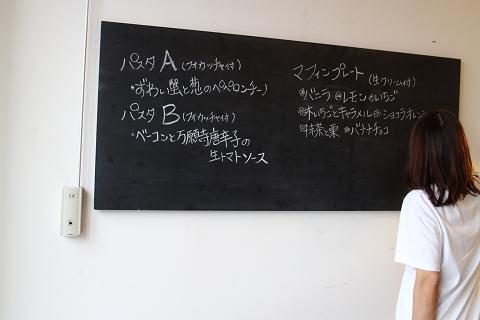 パスタ A (フォカッチャ付)
・ずわい蟹と葱のペペロンチーノ
パスタ B (フォカッチャ付)
・ベーコンと万願寺唐辛子の
生トマトソース
マフィンプレート
(生クリーム付)
バニラ レモン いちご
木いちごとキャラメル ショコラオレン
抹茶と栗 バナナチョコ